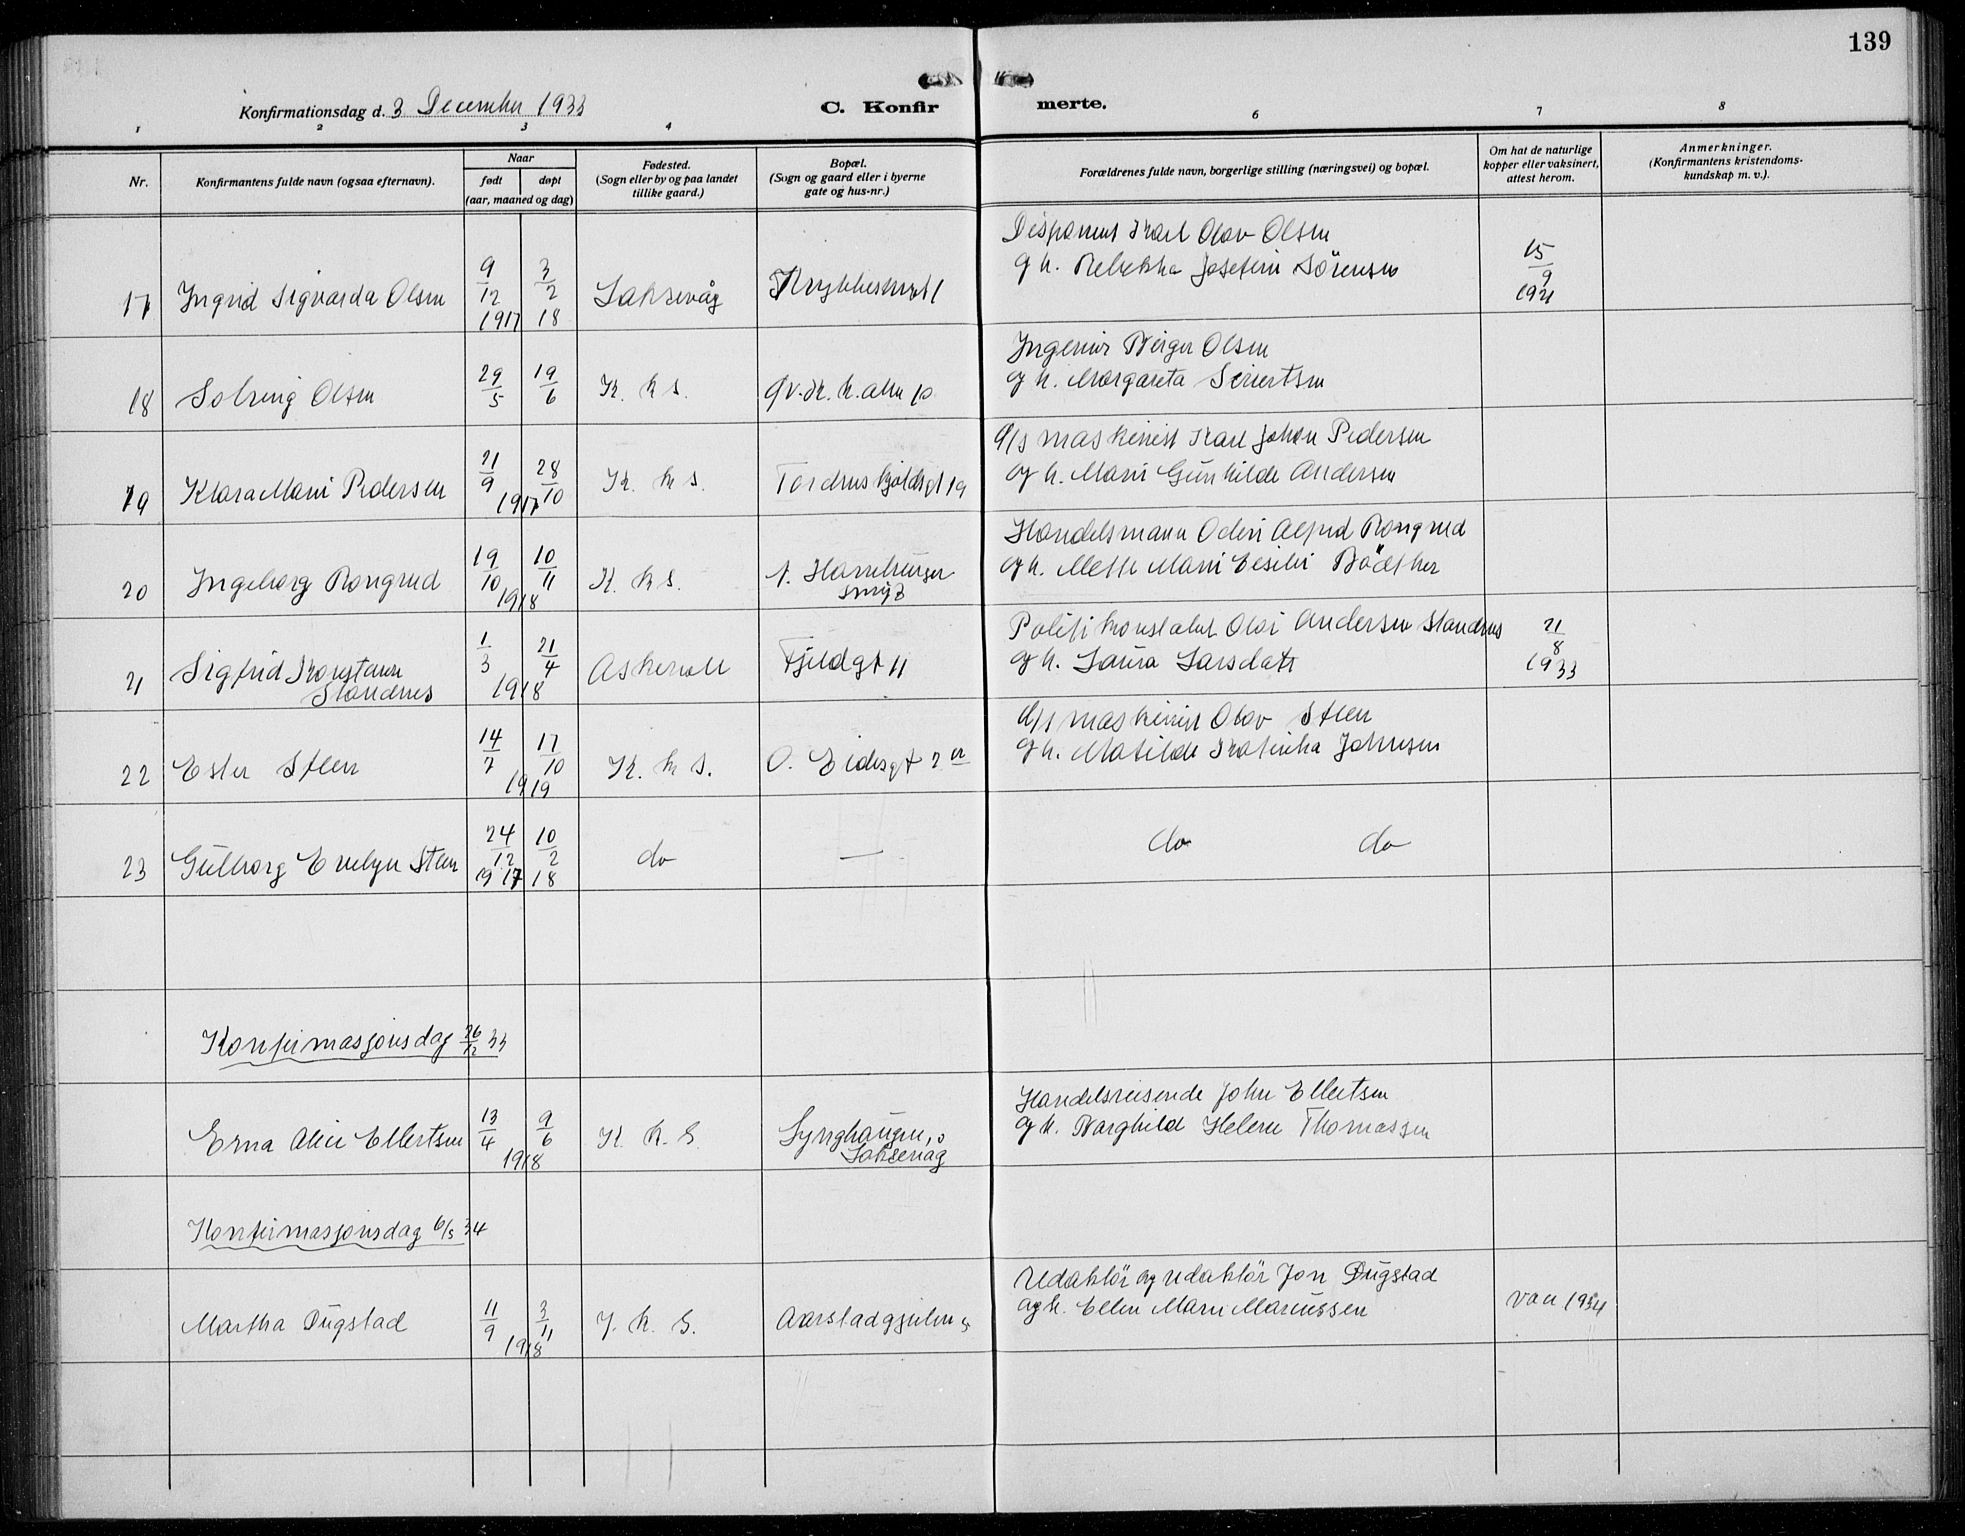 139
Konfirmationsdag d. 3 December 1933
C. Konfirmerte.
1 2 3 4 6 7 8
Nr.
Konfirmantens fulde navn (ogsaa efternavn).
Naar
født
døpt
(aar, maaned og dag)
Fødested.
(Sogn eller by og paa landet
tillike gaard.)
Bopæl.
(Sogn og gaard eller i byerne
gate og hus-nr.)
Forældrenes fulde navn, borgerlige stilling (næringsvei) og bopæl.
Om hat de naturlige
kopper eller vaksinert,
attest herom.
Anmerkninger.
(Konfirmantens kristendoms-
kundskap m. v.).
Disponent Karl Olov Olsen
17 Ingrid Sigvarda Olsen 9/12 1917 3/2 18 Laksevåg
og h. Rebekka Josefine Sörensen
15/9 1921
Ingeniör Birger Olsen
18 Solveig Olsen 29/5 19/6 K. k s.
og h. Margareta Sivertsen
D/s maskinist Karl Johan Pedersen
19 Klara Marie Pedersen 21/9 28/10 1917 K. k s. Tordenskjoldsgt 19
og h. Marie Gunhilde Andersen
Handelsmann Odin Alfred Rongved
20 Ingeborg Rongved 19/10 10/11 1918 K. k s. N. Hamburger
smug 3
og h. Mette Marie Cecilie Bödtker
Politikonstabel Olai Andersen Standnes
21 Sigfrid Konstanse
Standnes 1/3 21/4 1918 Askevoll Fjeldgt 11
og h. Laura Larsdatt
21/8 1933
D/s maskinist Olav Steen
22 Ester Steen 14/7 17/10 1919 K. k s. O. Eidesgt 2
og h. Matilde Katinka Johnsen
23 Gulborg Evelyn Steen 24/12 1917 10/2 18 do — do do
Konfirmasjonsdag 26/12 33
Handelsreisende John Ellertsen
Erna Alice Ellertsen 13/4 9/6 1918 K. k. S. Lynghaugen,
Laksevåg
og h. Borghild Helene Thomassen
Konfirmasjonsdag 6/5 34
Redaktör og redaktör Jon Dugstad
Martha Dugstad 11/9 3/11 1918 J. K. S. Aarstadgjeilen 5
og h. Ellen Marie Marcussen
vac 1934